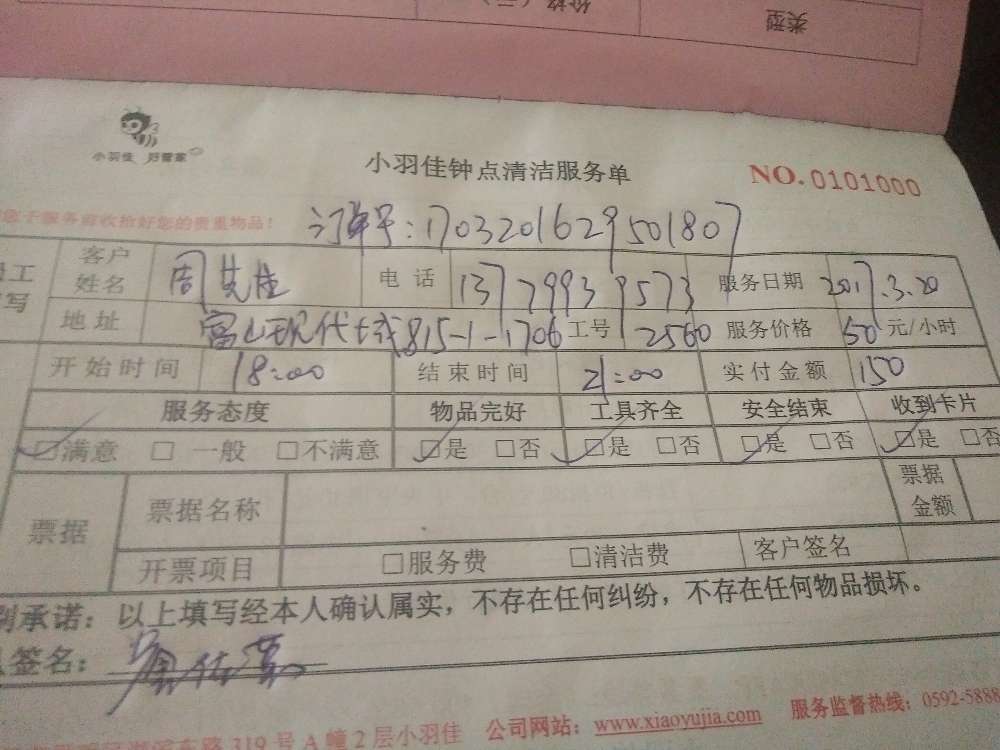 价格（元）
类型
小羽佳 好管家
小羽佳钟点清洁服务单
NO.0101000
您于服务前收拾好您的贵重物品！
订单号：1703201629501807
客户姓名 周先生 电话 13779939573 服务日期 2017.3.20
地址 富山现代城815-1-1706 工号 2560 服务价格 50元/小时
开始时间 18:00 结束时间 21:00 实付金额 150
服务态度 物品完好 工具齐全 安全结束 收到卡片
☑满意 □一般 □不满意 ☑是 □否 ☑是 □否 ☑是 □否 ☑是 □否
票据 票据名称 票据金额
开票项目 □服务费 □清洁费 客户签名
承诺：以上填写经本人确认属实，不存在任何纠纷，不存在任何物品损坏。
签名：
东路319号A幢2层小羽佳 公司网站：www.xiaoyujia.com 服务监督热线：0592-5888